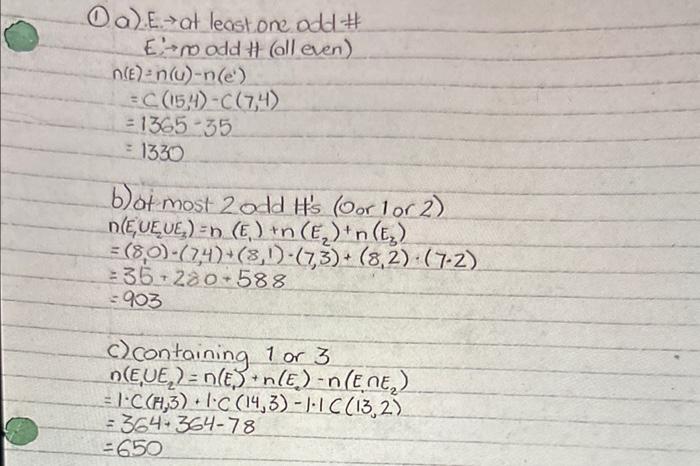 ① a) E.→at least one odd #
E'.→no odd # (all even)
n(E)=n(u)-n(e')
=C(15,4)-C(7,4)
=1365-35
=1330
b) at most 2 odd #'s (0 or 1 or 2)
n(E₁UE₂UE₃)=n(E₁)+n(E₂)+n(E₃)
=(8,0)·(7,4)+(8,1)·(7,3)+(8,2)·(7·2)
=35+280+588
=903
c) containing 1 or 3
n(E₁UE₂)=n(E₁)+n(E₂)-n(E₁∩E₂)
=1·C(14,3)+1·C(14,3)-1·1C(13,2)
=364+364-78
=650